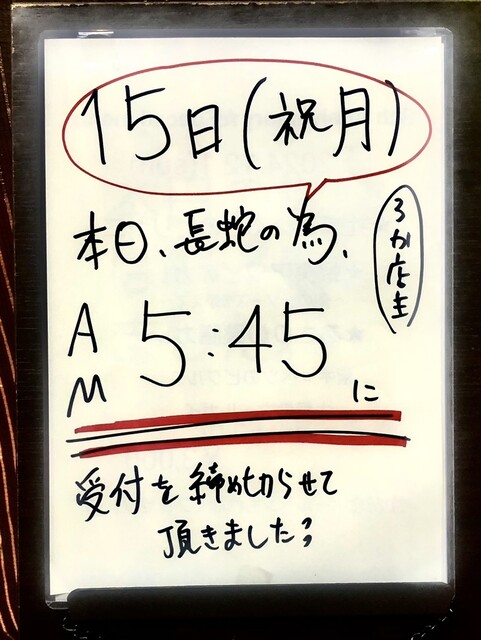 15日(祝月)
本日、長蛇の為、
AM 5:45に
受付を締め切らせて
頂きました